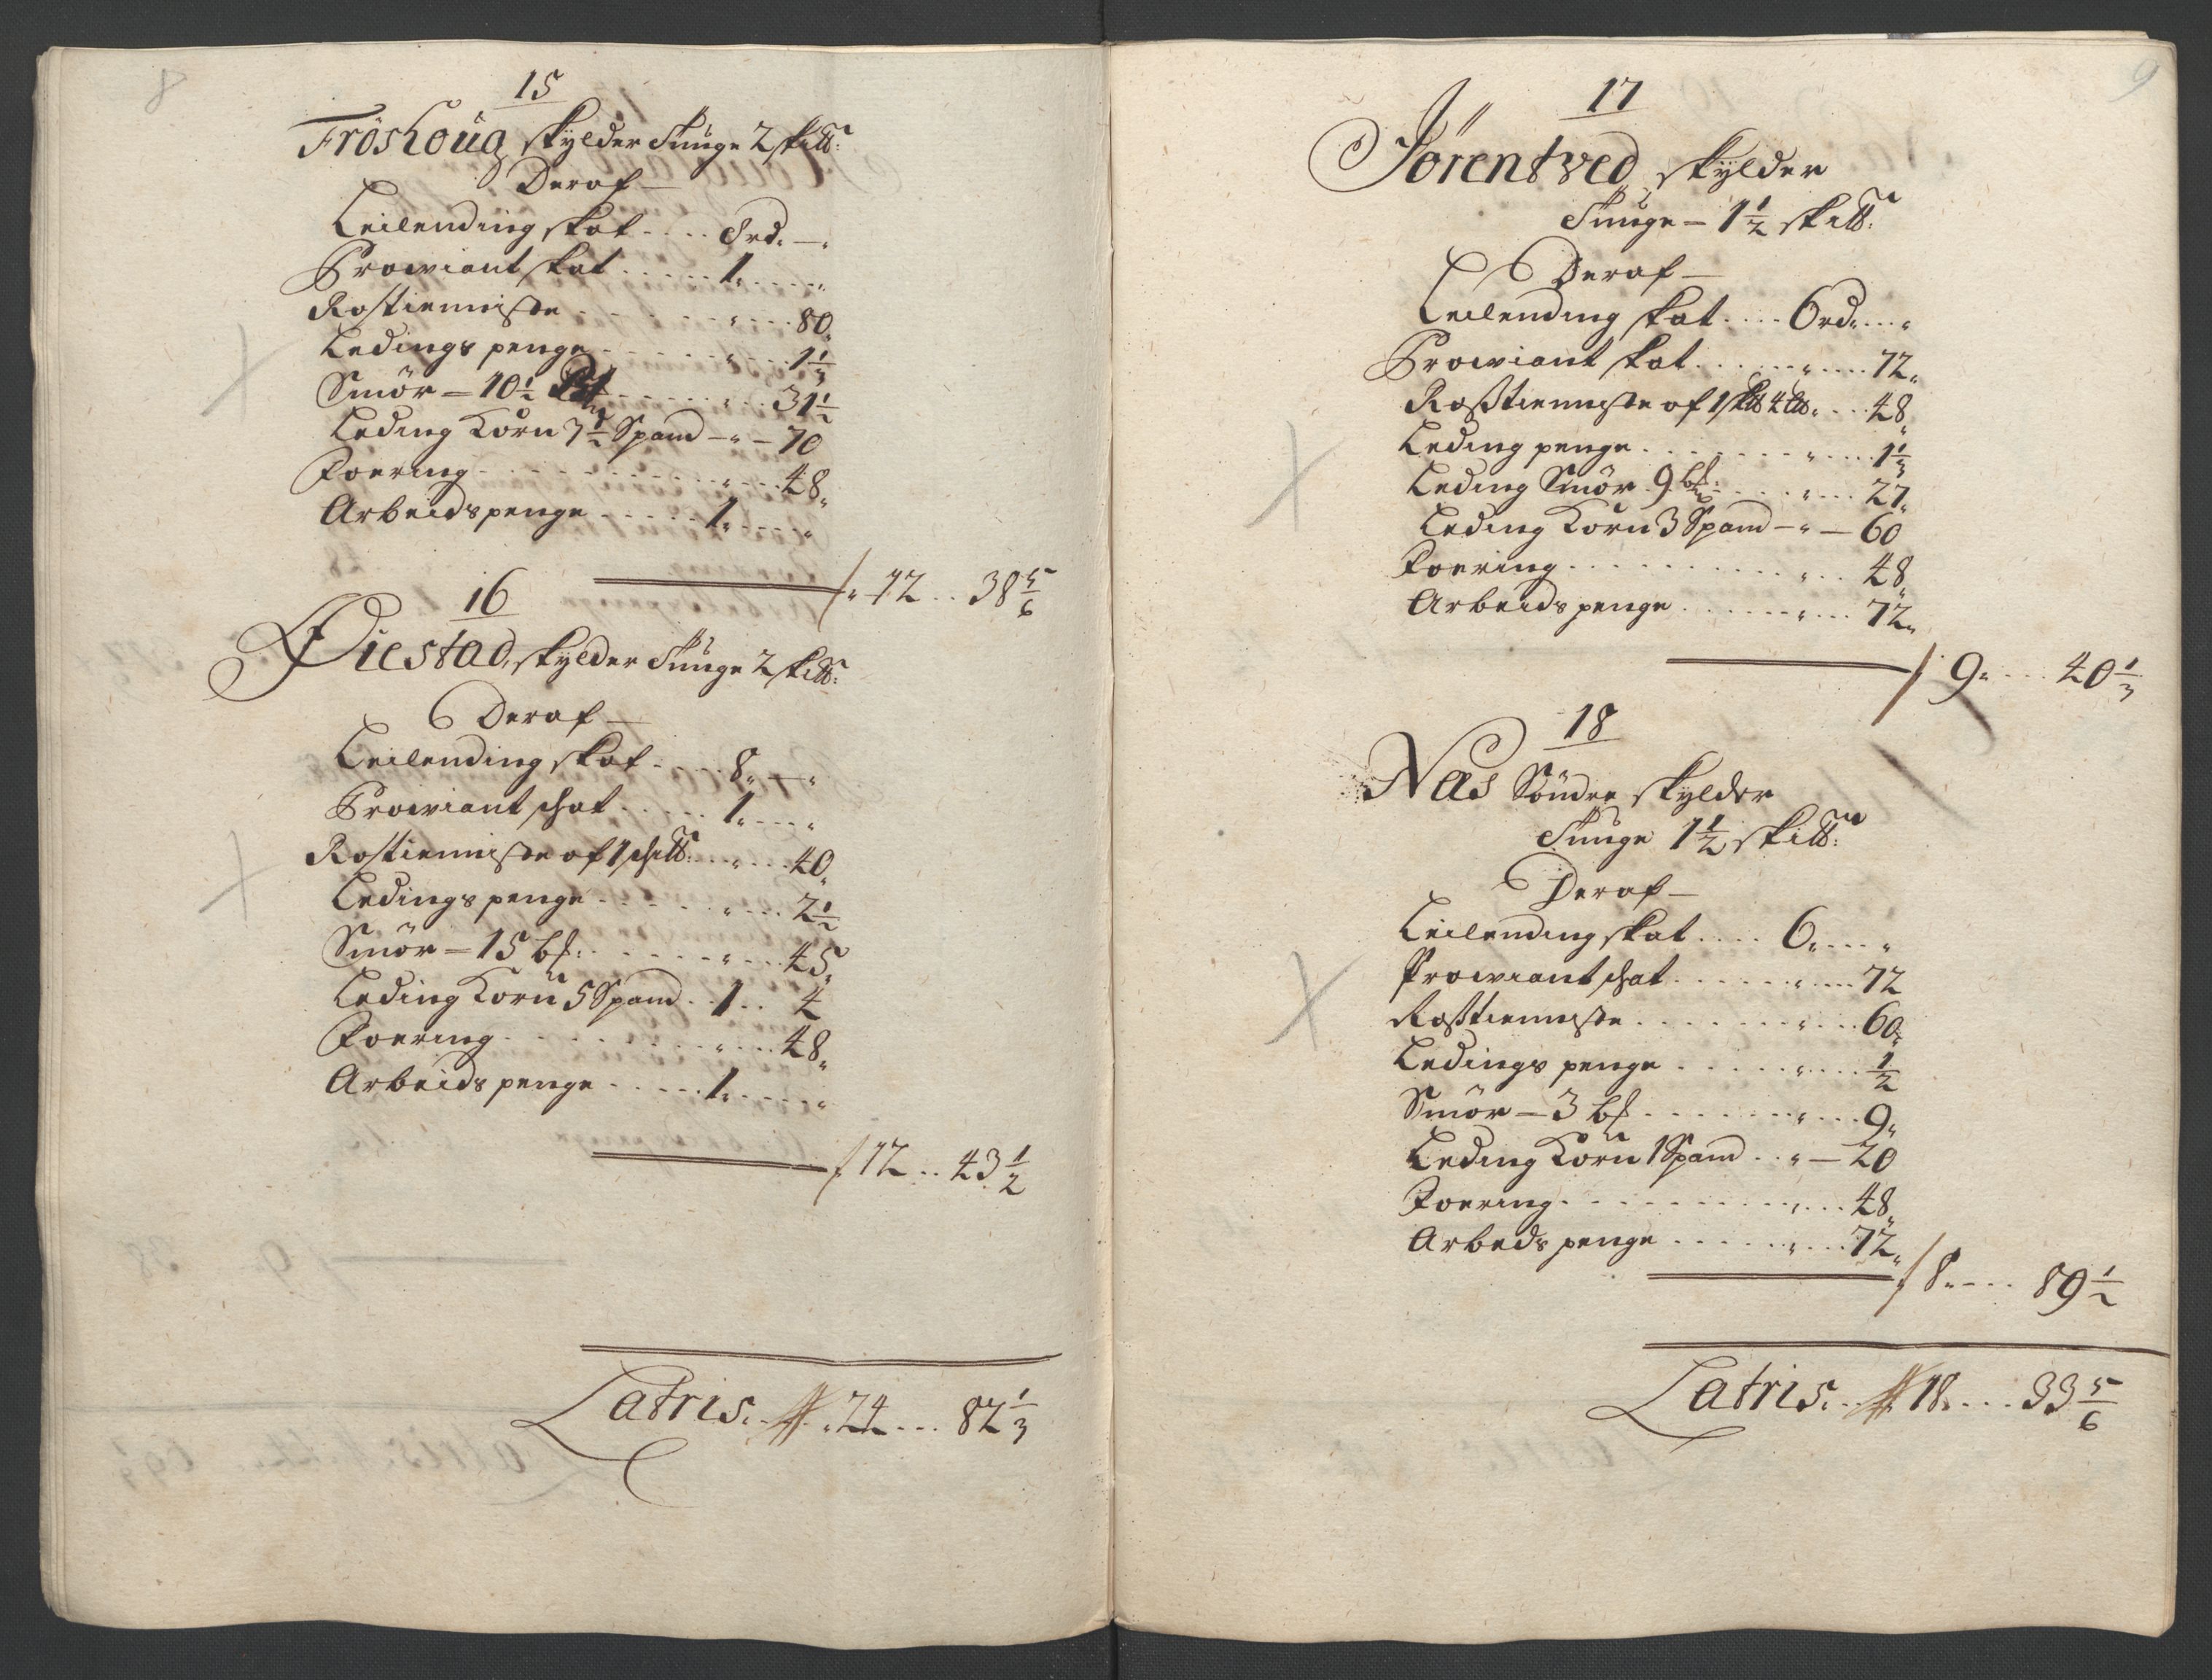 8
15
Fröshoug skylder Tunge 2 sk℔:
Deraf
Leilending skat .... 8 rd. —
Prowiant skat ..... 1. ....
Rostienniste ........ 80.
Ledings penge ....... 1 1/3
Smör – 10 1/2 ...... 31 1/2
Leding Korn 3 1/2 Spand – „ – 70
Foering ........ 48.
Arbeidspenge ..... 1. ....
12 .. 38 5/6
16
Diestad, skylder Tunge 2 sk℔:
Deraf
Leilending skat .... 8. —
Prowiant schat ..... 1. ....
Rostienniste af 1 sch℔: .... 40.
Ledings penge ....... 2 1/2
Smör – 15 bſ: ....... 45.
Leding Korn 5 Spand .. 1 .. 4
Foering ........ 48.
Arbeids penge ..... 1. ....
12 .. 43 1/2
Latris. 24 ... 82 1/3
9
17
Jörentved skylder
Tunge – 1 1/2 sk℔:
Deraf
Leilending skat .... 6 rd. ...
Prowiant skat ....... 72.
Rostienniste af 1 sk℔ 4 ℔. ... 48.
Leding penge ....... 1 1/3
Leding Smör 9 bſ: ..... 27.
Leding Korn 3 Spand – „ – 60
Foering ......... 48.
Arbeids penge ....... 72.
9. ... 40 1/3
18
Næs Söndre skylder
Tunge 1 1/2 sk℔:
Deraf
Leilending skat .... 6. ...
Prowiant schat ....... 72
Rostienniste ....... 60.
Ledings penge ....... 1/2
Smör – 3 bſ ....... 9.
Leding Korn 1 Spand .. „ – 20
Foering ......... 48.
Arbeds penge ....... 72.
8. ... 89 1/2
Latris. 18. ... 33 5/6